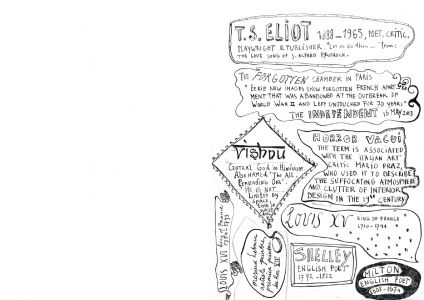 T.S. ELIOT 1888-1965, POET, CRITIC,
PLAYWRIGHT & PUBLISHER. "Let us Go then..." from:
THE LOVE SONG OF J. ALFRED PRUFROCK.
THE FORGOTTEN CHAMBER IN PARIS
"EERIE NEW IMAGES SHOW FORGOTTEN FRENCH APART
MENT THAT WAS ABANDONED AT THE OUTBREAK OF
WORLD WAR II AND LEFT UNTOUCHED FOR 70 YEARS"
THE INDEPENDENT 16 MAY 2013
HORROR VACUI
THE TERM IS ASSOCIATED
WITH THE ITALIAN ART
CRITIC MARIO PRAZ,
WHO USED IT TO DESCRIBE
THE SUFFOCATING ATMOSPHERE
AND CLUTTER OF INTERIOR
DESIGN IN THE 19th CENTURY
Vishnu
"CENTRAL GOD in HINDUISM
Also NAMED "The All
Pervading One".
He IS NOT
Limited by
space
time
LOUIS XV KING OF FRANCE
1710-1774
LOUIS XVI King of France
SHELLEY
ENGLISH POET
1792-1822
MILTON
ENGLISH POET
1608-1674